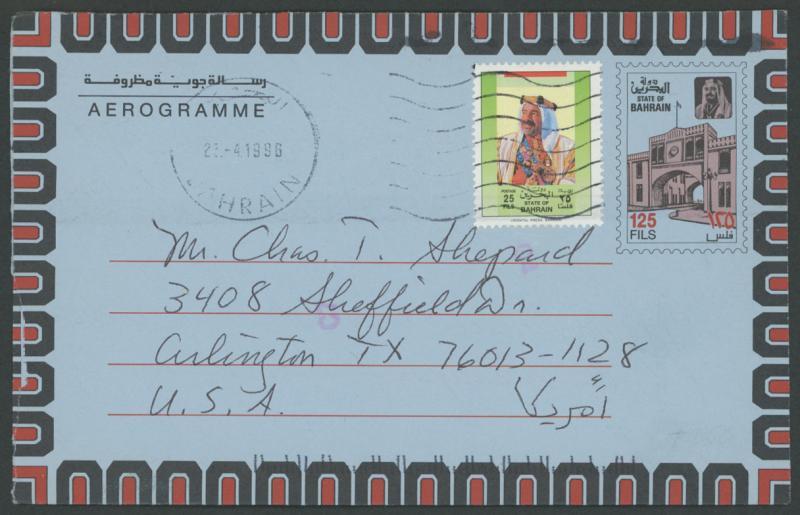 رسالة جوية مظروفة
AEROGRAMME
البحرين
2 .-4.1996
BAHRAIN
POSTAGE
25
FILS
دولة البحرين
STATE OF
BAHRAIN
البريد
٢٥
فلسا
دولة
البحرين
STATE OF
BAHRAIN
125
FILS
١٢٥
فلس
Mr. Chas. T. Shepard
3408 Sheffield Dr.
Arlington TX 76013-1128
U.S.A.
أمريكا